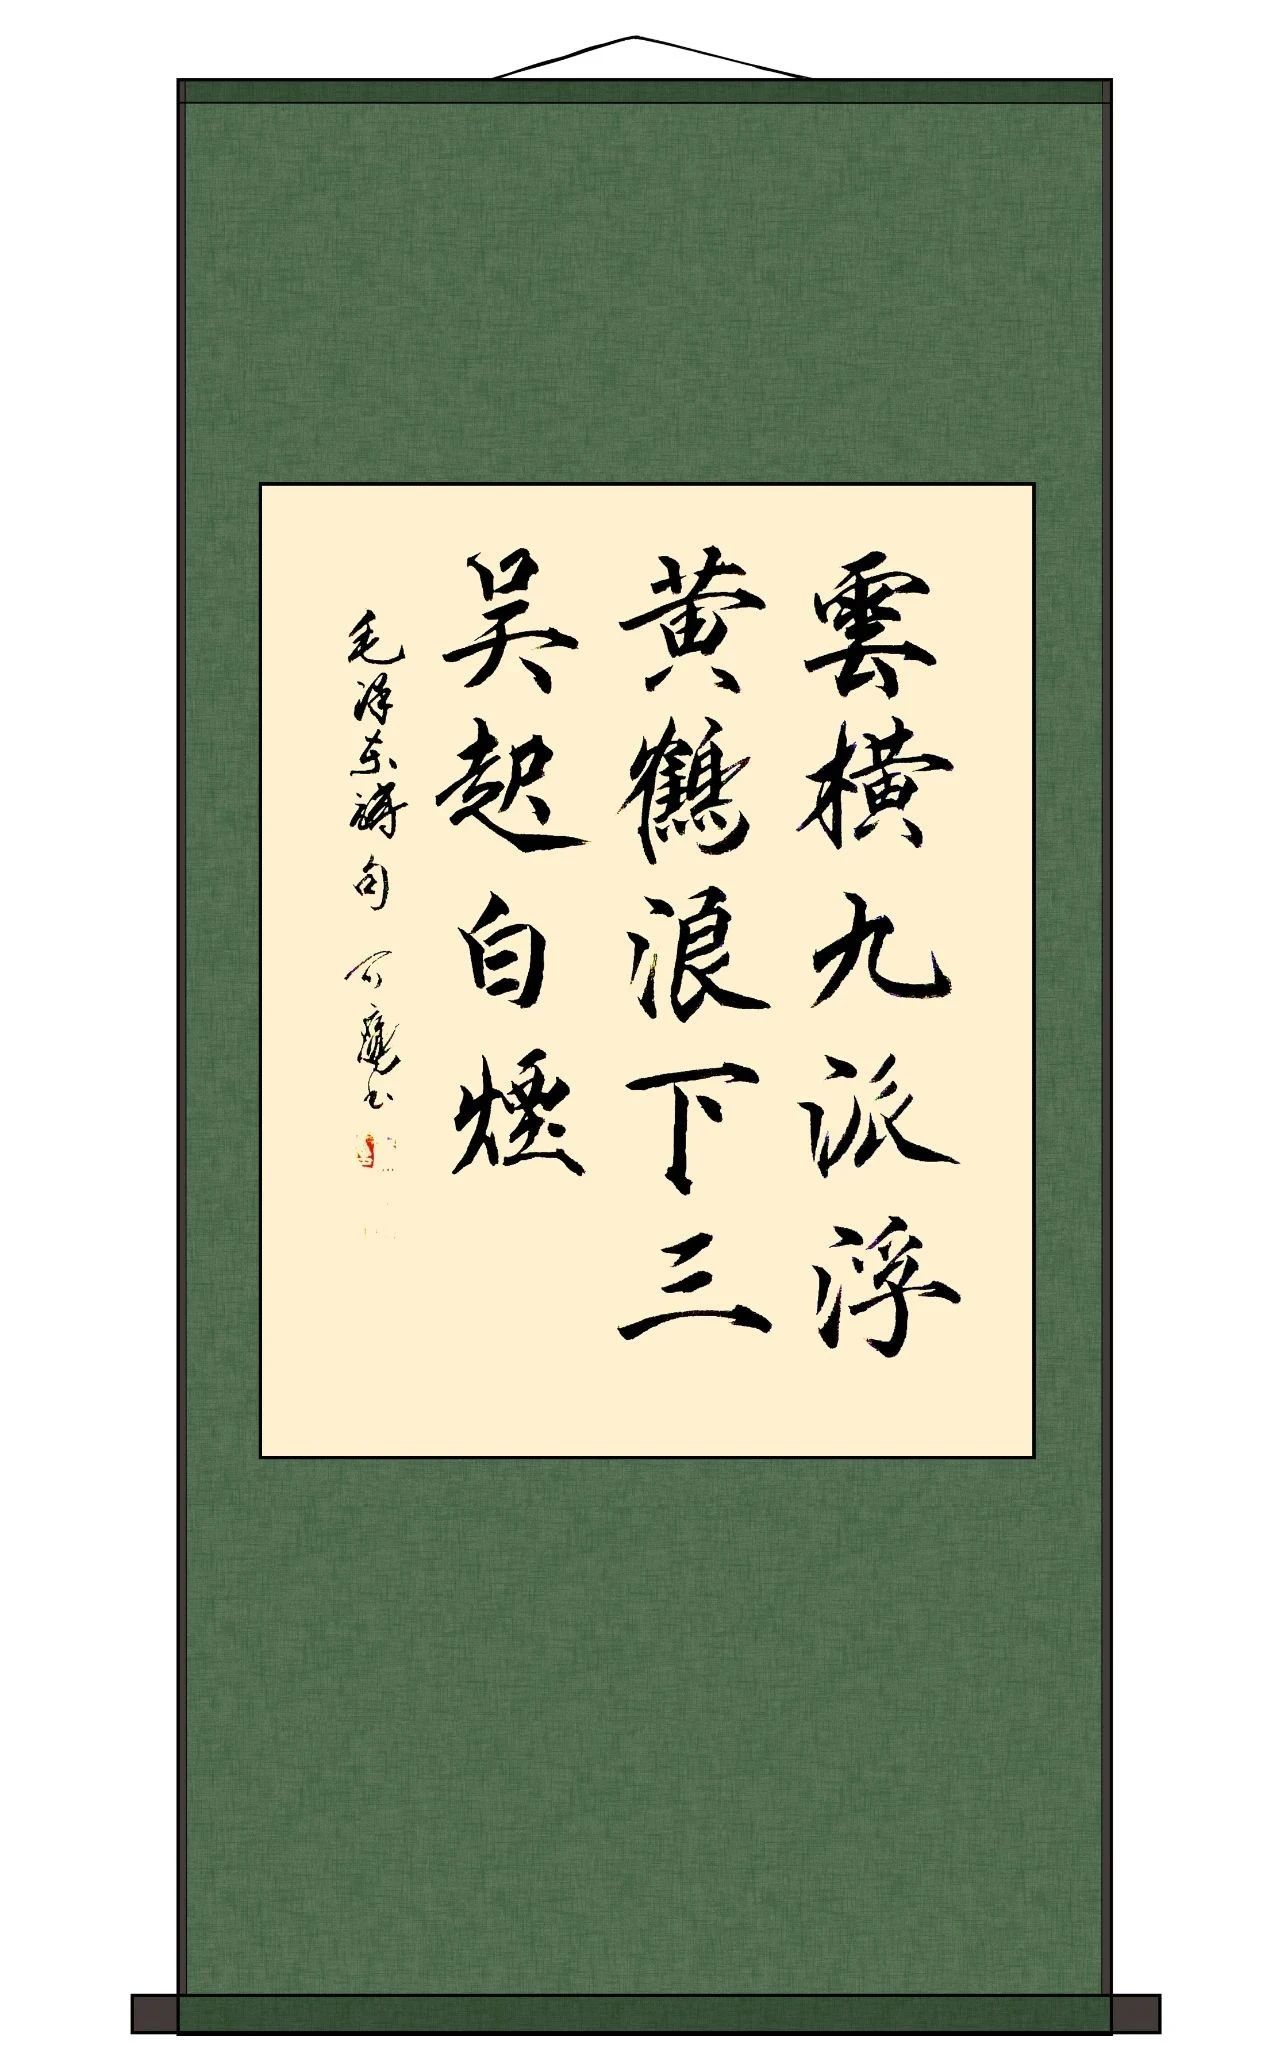 雲橫九派浮
黄鶴浪下三
吴起白煙
毛泽东詩句 書